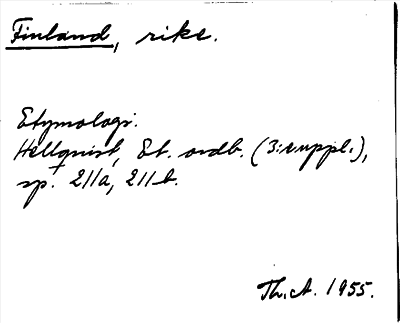 Finland, rike.
Etymologi.
Hellquist, Et. ordb. (3:e uppl.),
sp. 211a, 211b.
Th. A. 1955.